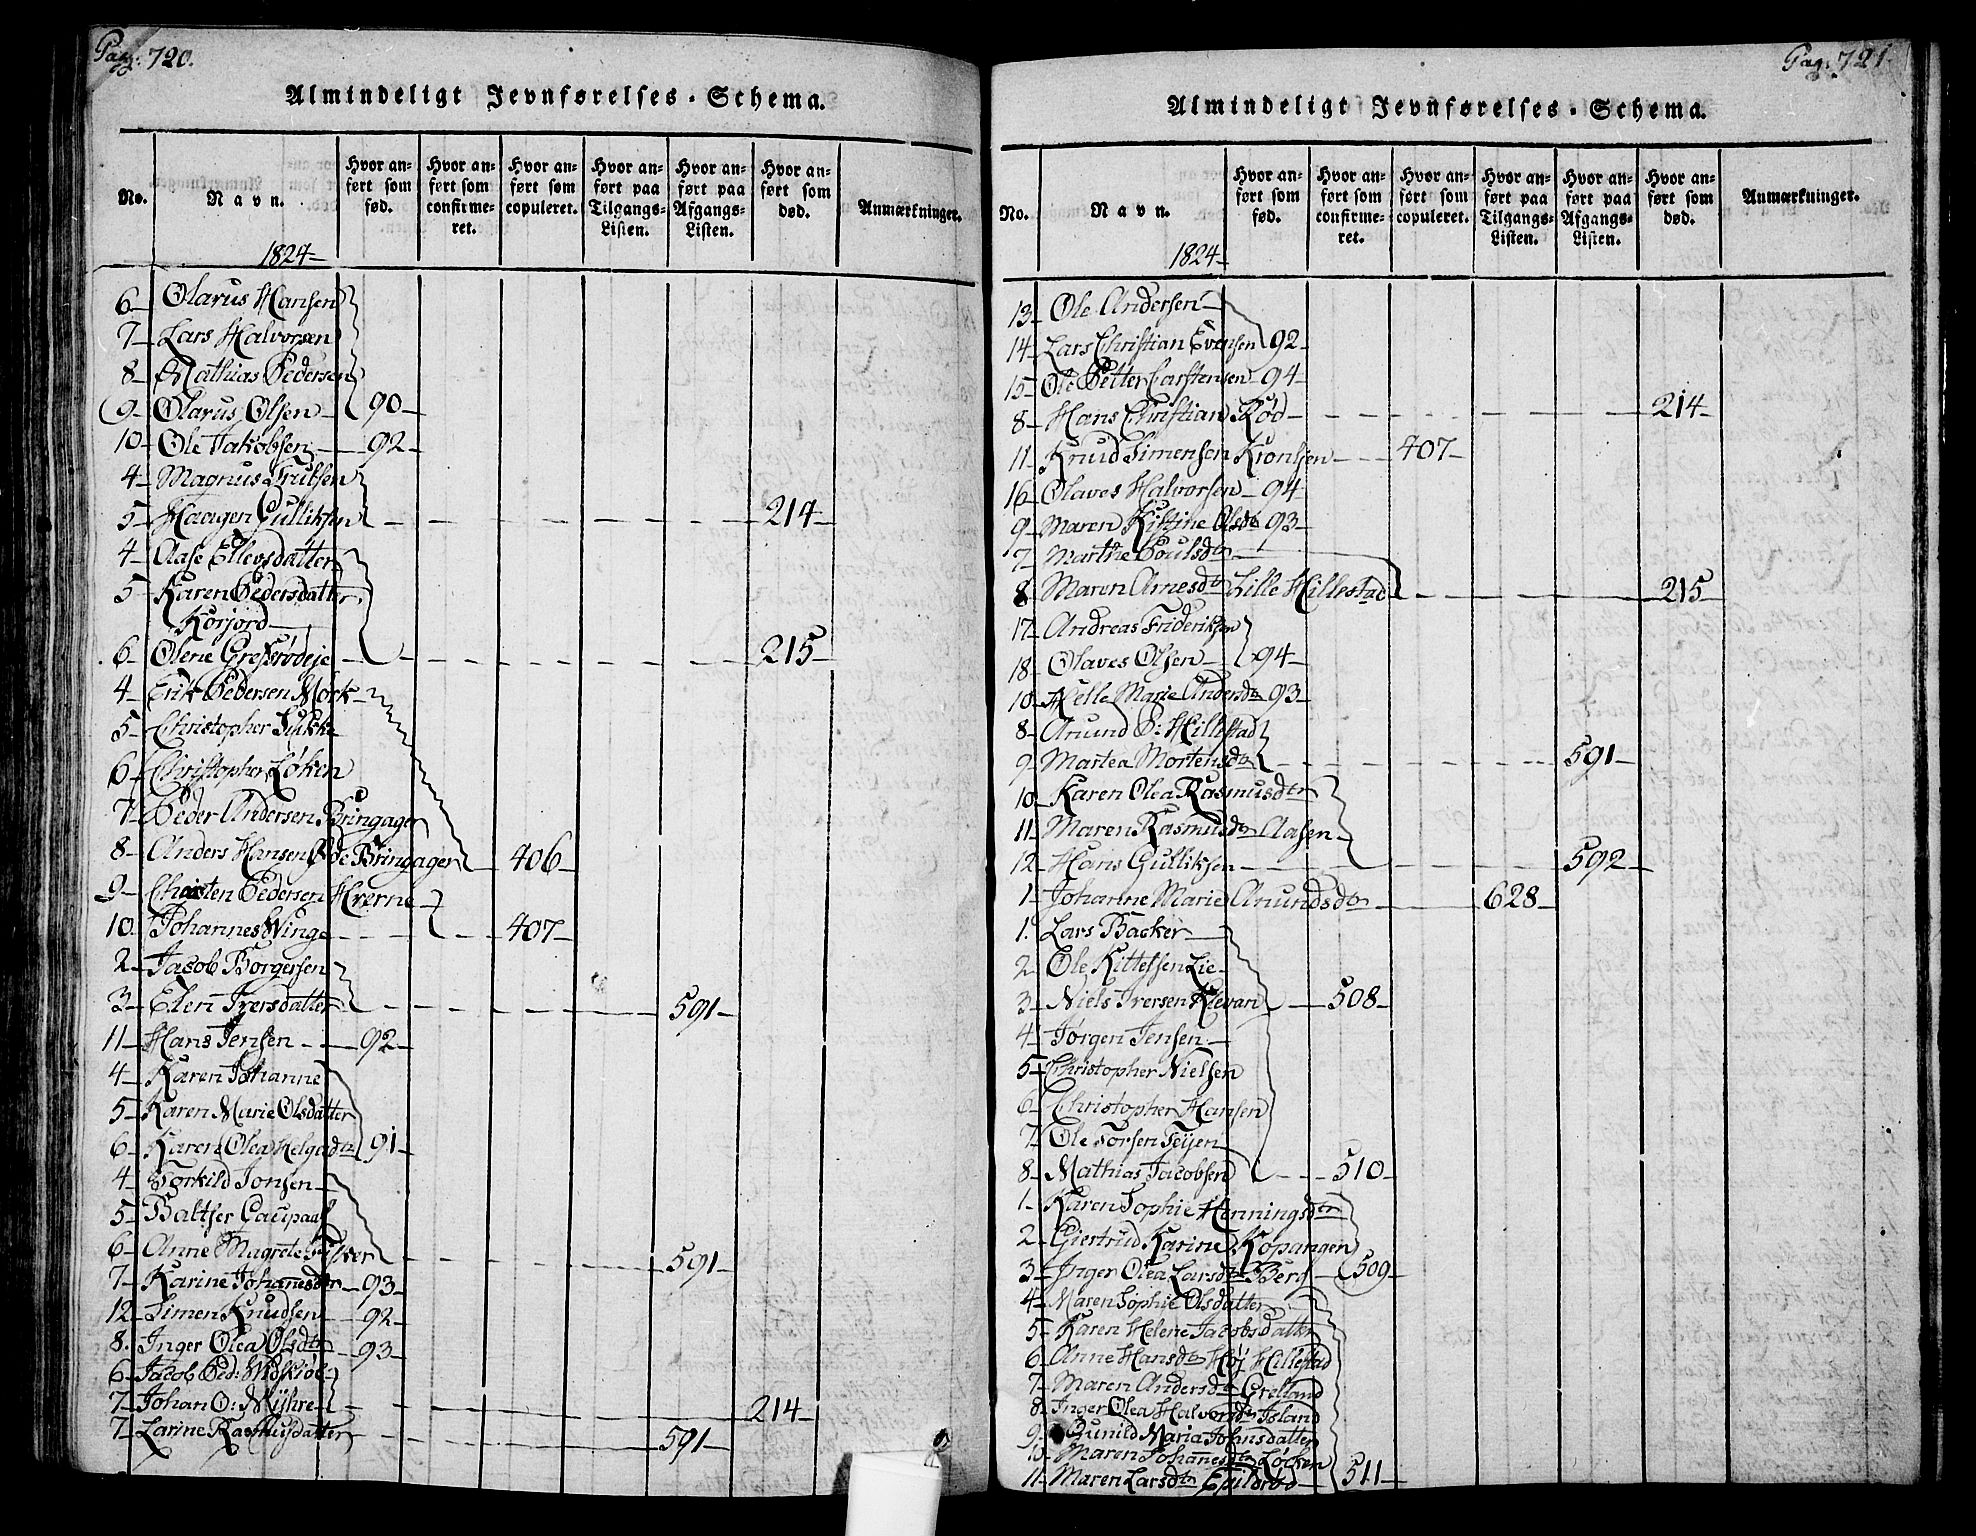 Pag: 720.
Almindeligt Jevnførelses-Schema.
No.
Navn.
Hvor an-
ført som
fød.
Hvor an-
ført som
confirme-
ret.
Hvor an-
ført som
copuleret.
Hvor an-
ført paa
Tilgangs-
Listen.
Hvor an-
ført paa
Afgangs-
Listen.
Hvor an-
ført som
død.
Anmærkninger.
1824
6 Olarus Hansen
7 Lars Halvorsen
8 Mathias Pedersen
9 Olarus Olsen 90
10 Ole Jakobsen 92
4 Magnus
5 Haagen Gulliksen 214
4 Aase Ellevsdatter
5 Karen Pedersdatter
Korjord
6 Olene Grefsrødeje 215
4 Erik Pedersen Mørk
5 Christopher
6 Christopher Løken
7 Peder Andersen Bringager
8 Anders Hansen Øde Bringager 406
9 Christen Pedersen
10 Johannes Winge 407
2 Jacob Borgersen
3 Elen Iversdatter 591
11 Hans Jensen 92
4 Karen Johanne
5 Karen Marie Olsdatter
6 Karen Olea Helgadtr 91
4 Torkild Jonsen
5 Baltser Gaupaas
6 Anne Magrete
591
7 Karine Johanesdtr 93
12 Simen Knudsen 92
8. Inger Olea Olsdtr 93
6 Jacob Ped:
7 Johan O: Myhre 214
7 Larine Rasmusdatter 591
Pag: 721.
Almindeligt Jevnførelses-Schema.
No.
Navn.
Hvor an-
ført som
fød.
Hvor an-
ført som
confirme-
ret.
Hvor an-
ført som
copuleret.
Hvor an-
ført paa
Tilgangs-
Listen.
Hvor an-
ført paa
Afgangs-
Listen.
Hvor an-
ført som
død.
Anmærkninger.
1824
13 Ole Andersen
14 Lars Christian Evensen 92
15 Ole Petter Carstensen 94
8 Hans Christian Rød 214
11 Knud Simensen 407
16 Olaves Halvorsen 94
9 Maren Kistine Olsdtr 93
7 Marthe Poulsdtr
8 Maren Arnesdtr Lille Hillestad 215
17 Andreas Frideriksen
18 Olaves Olsen 94
10 Helle Marie Andersdtr 93
8 Amund P: Hillestad
9 Martea Mortensdtr 591
10 Karen Olea Rasmusdtr
11 Maren Rasmusdtr Aasen
12 Hans Gulliksen 592
1 Johanne Marie Amundsdtr 628
1. Lars Backer
2 Ole Kittelsen Lie
3 Niels Iversen Klevan 508
4 Jørgen Jensen
5 Christopher Nielsen
6 Christopher Hansen
7 Ole Torsen Teijen
8 Mathias Jacobsen 510
1 Karen Sophie Henningsdtr
2 Giertrud Karine Kopangen
3 Inger Olea Larsdtr Berg 509
4 Maren Sophie Olsdatter
5 Karen Helene Jacobsdatter
6 Anne Hansdtr Høj Hillestad
7 Maren Andersdtr Grelland
8 Inger Olea Halvorsdtr Island
9 Gunild Maria Johnsdatter
10 Maren Johanesdtr Løcken
11 Maren Larsdtr 511